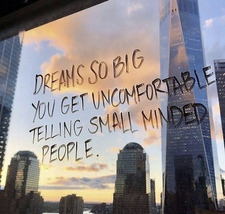 DREAMS SO BIG
YOU GET UNCOMFORTABLE
TELLING SMALL MINDED
PEOPLE.